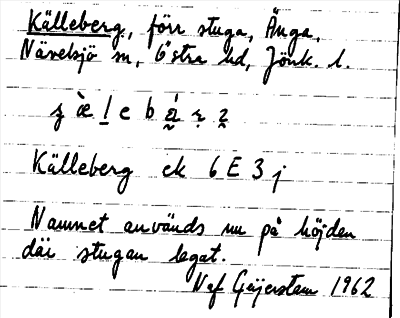 Källeberg, förr stuga, Änga,
Nävelsjö sn, Östra hd, Jönk. l.
Källeberg ek 6 E 3 j
Namnet används nu på höjden
där stugan legat.
Naf Geijerstam 1962